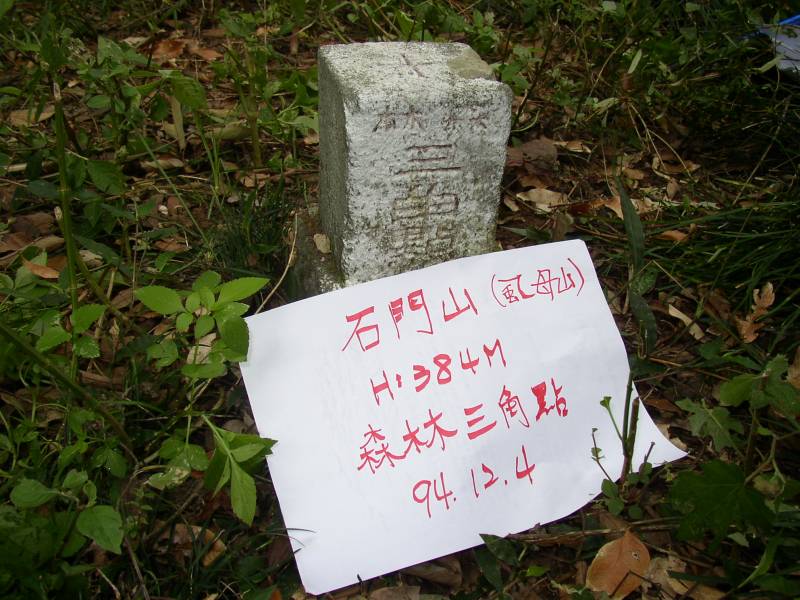 三
石門山(虱母山)
H:384M
森林三角點
94.12.4